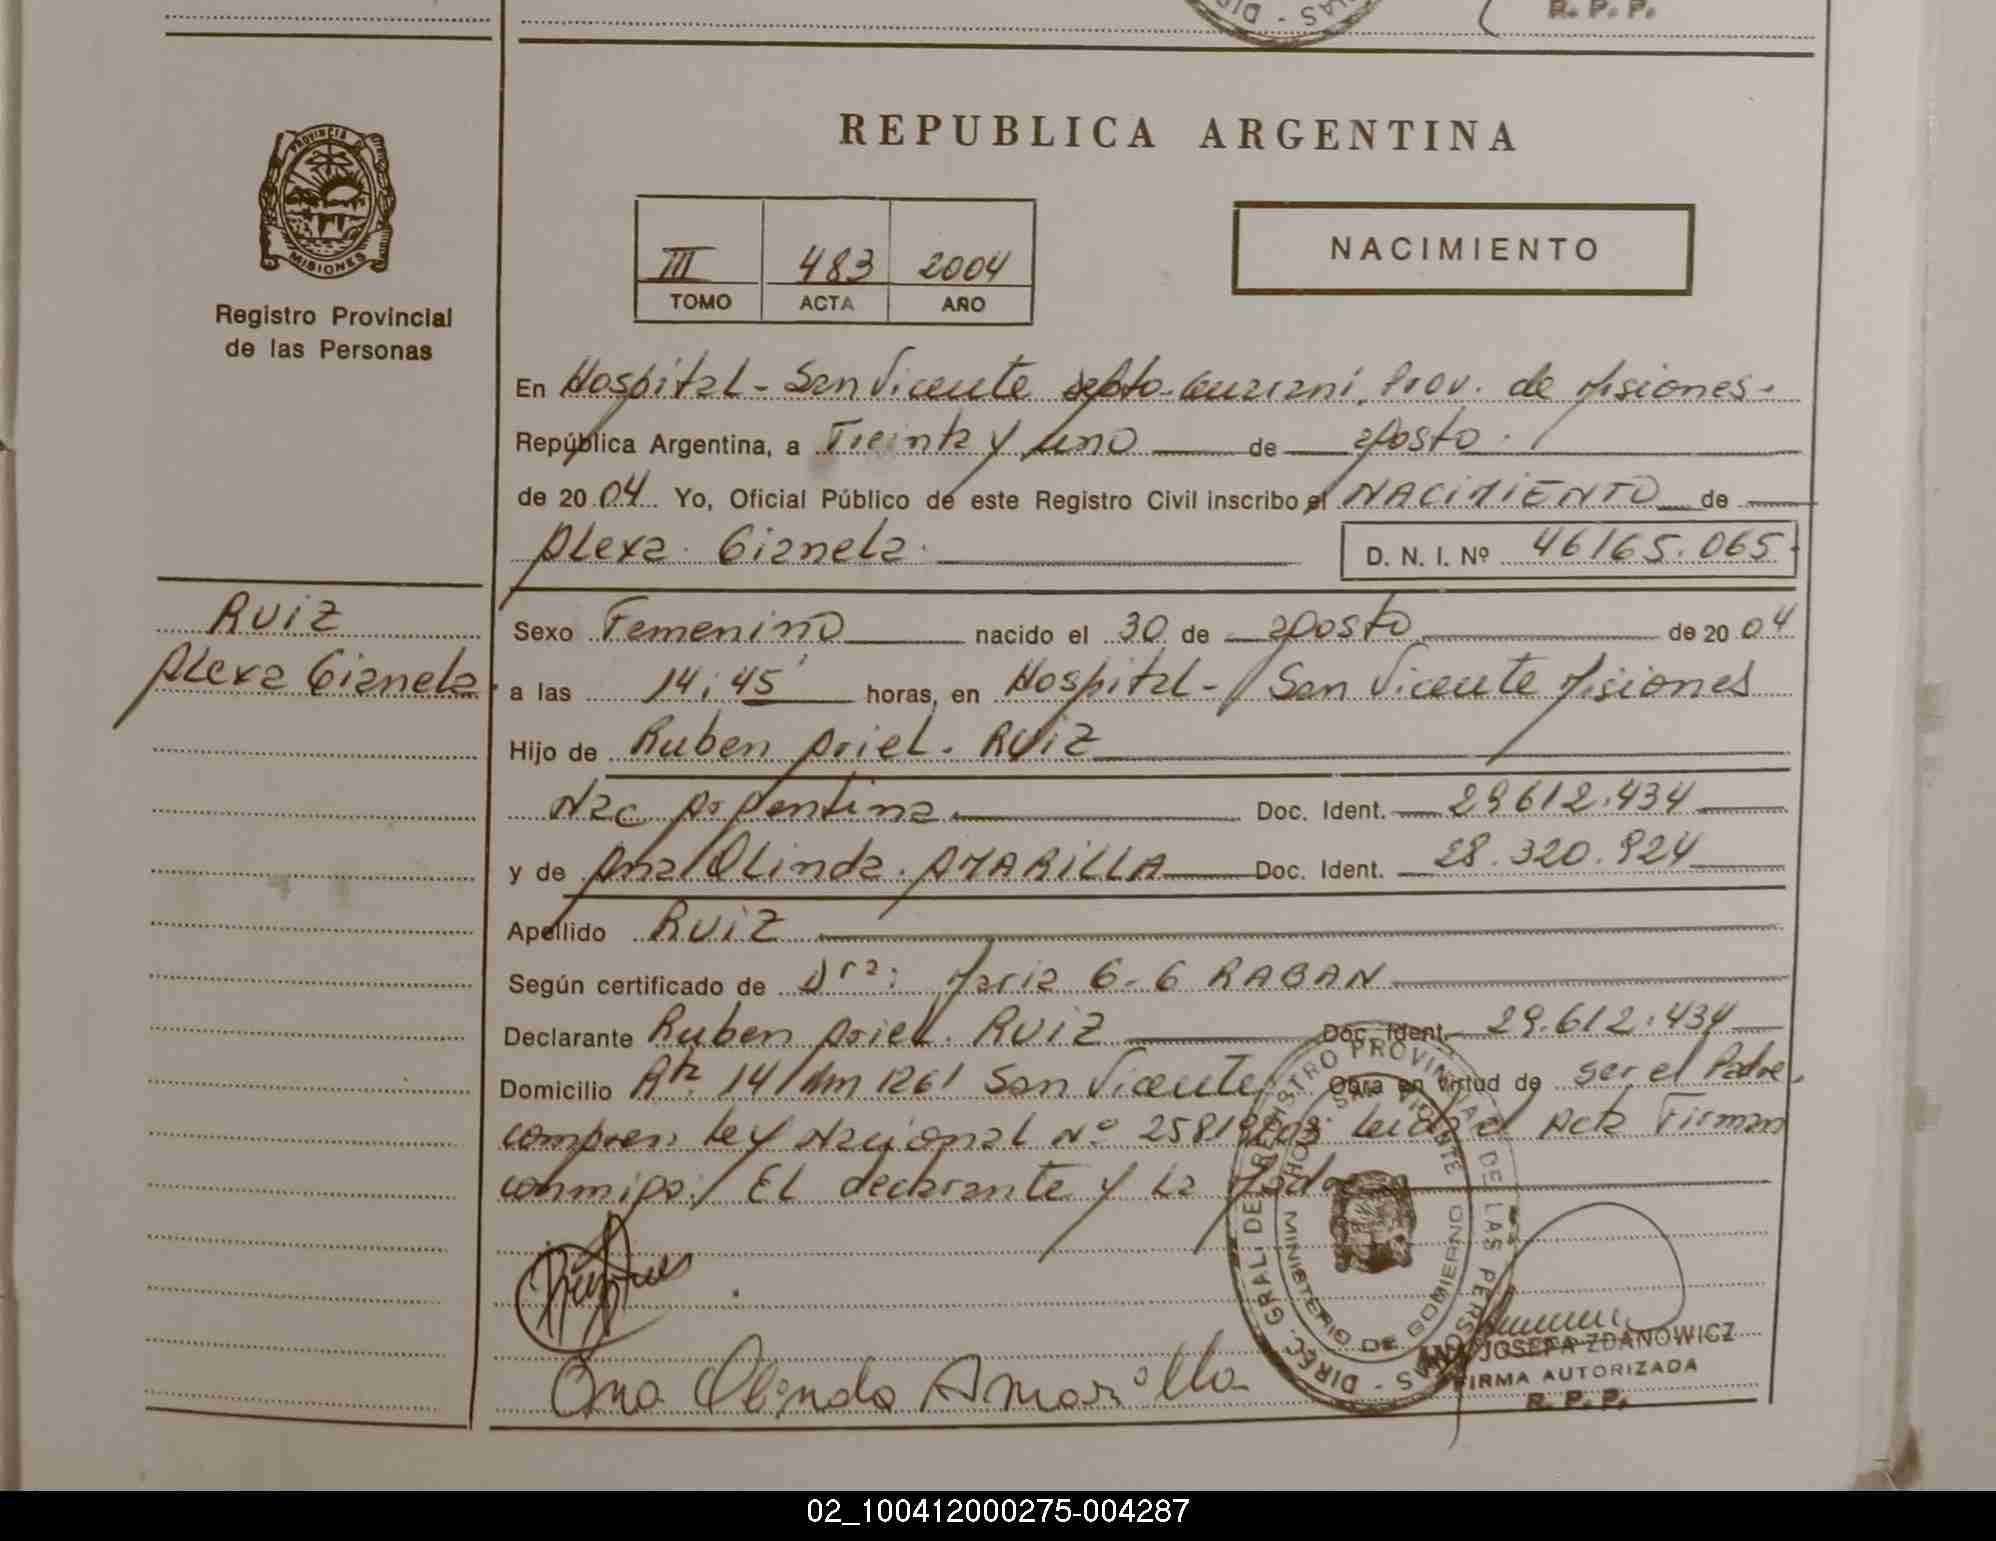 R. P. P.
REPUBLICA ARGENTINA
PROVINCIA DE
MISIONES
Registro Provincial
de las Personas
III 483 2004
TOMO ACTA AÑO
NACIMIENTO
En Hospital - San Vicente Dpto. Guarani, Prov. de Misiones -
República Argentina, a Treinta y uno de agosto.
de 2004 Yo, Oficial Público de este Registro Civil inscribo el NACIMIENTO de
Alexa Gianela. D. N. I. Nº 46165.065
RUIZ
Alexa Gianela
Sexo Femenino nacido el 30 de agosto de 2004
a las 14:45 horas, en Hospital - San Vicente Misiones
Hijo de Ruben Ariel. RUIZ
Nac Argentina Doc. Ident. 29612.434
y de Ana Olinda. AMARILLA Doc. Ident. 28.320.924
Apellido RUIZ
Según certificado de Dra: Maria G. G RABAN
Declarante Ruben Ariel. RUIZ Doc. Ident. 29.612.434
Domicilio Rta. 14 Km 1261 San Vicente Obra en virtud de ser el Padre.
Ley Nacional Nº Leida el Acta Firman
conmigo. El declarante y La Madre
Ana Olinda Amarilla
DIREC. GRAL. DEL REGISTRO PROVINCIAL DE LAS PERSONAS
MINISTERIO DE GOBIERNO
SAN VICENTE
JOSEFA ZDANOWICZ
FIRMA AUTORIZADA
R. P. P.
02_100412000275-004287